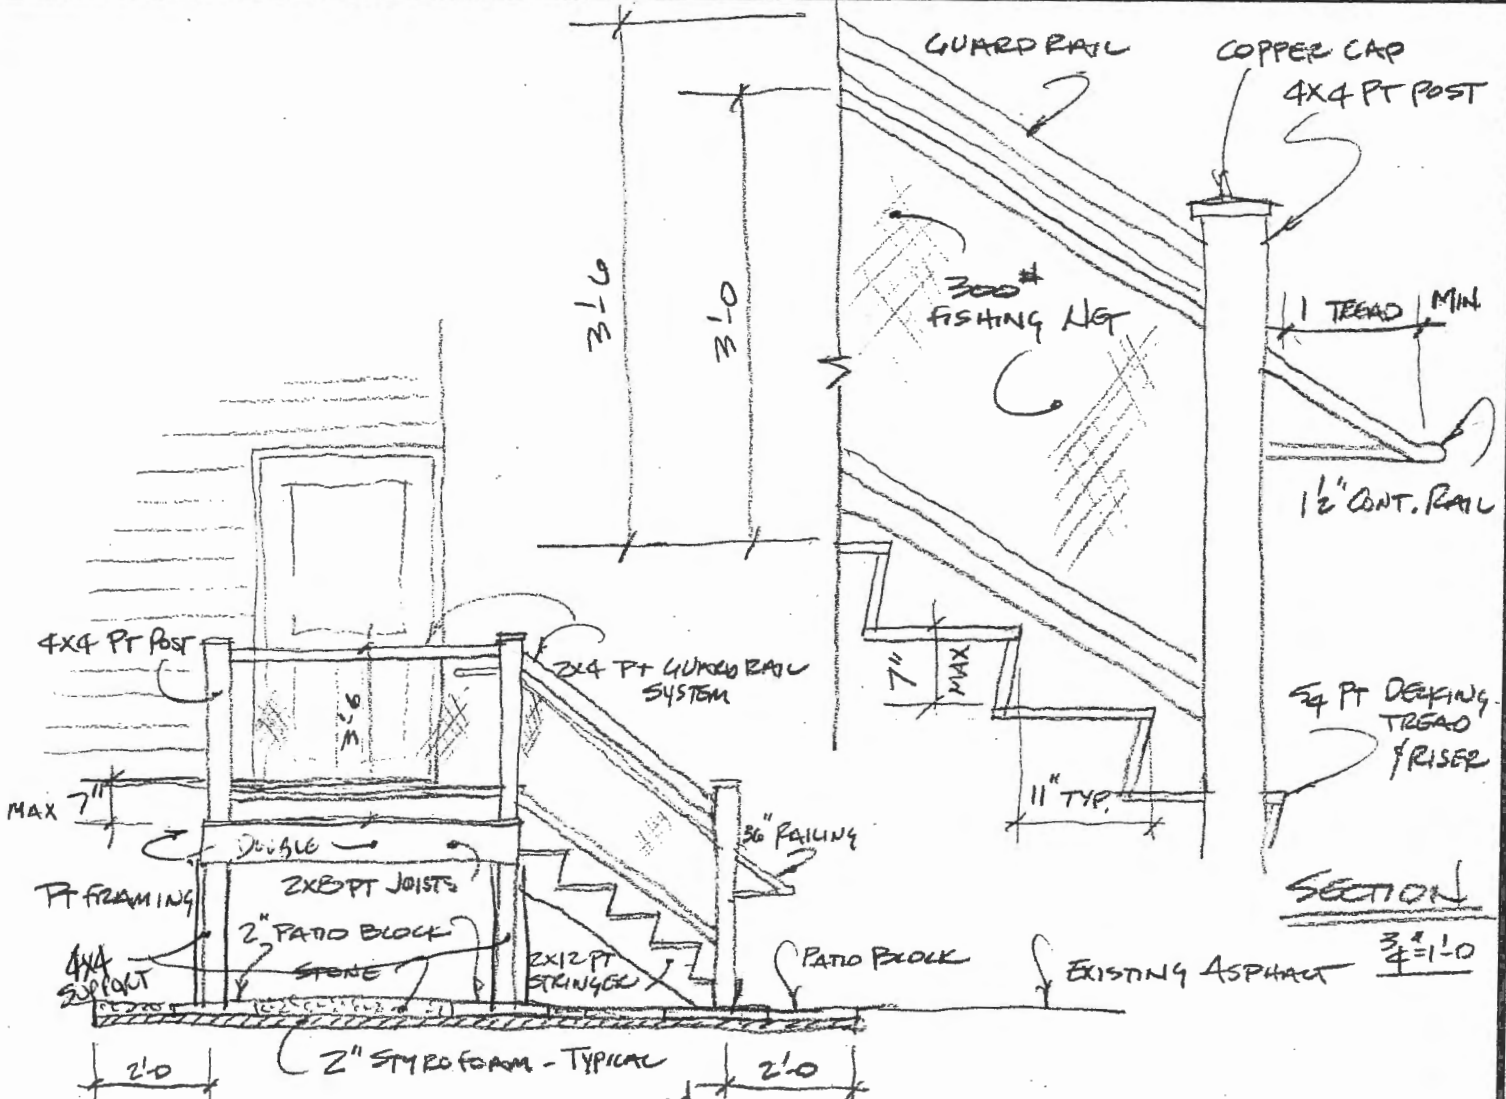 GUARD RAIL
COPPER CAP
4X4 PT POST
3'-6
3'-0
300#
FISHING NET
1 TREAD MIN.
1½" CONT. RAIL
7" MAX
11" TYP.
5/4 PT DECKING
TREAD
& RISER
SECTION
3/4"=1'-0
4X4 PT POST
2X4 PT GUARD RAIL
SYSTEM
3'-6
MAX 7"
DOUBLE
2X8 PT JOISTS
PT FRAMING
36" RAILING
2" PATIO BLOCK
STONE
4X4
SUPPORT
2X12 PT
STRINGER
PATIO BLOCK
EXISTING ASPHALT
2" STYROFOAM - TYPICAL
2'-0
2'-0